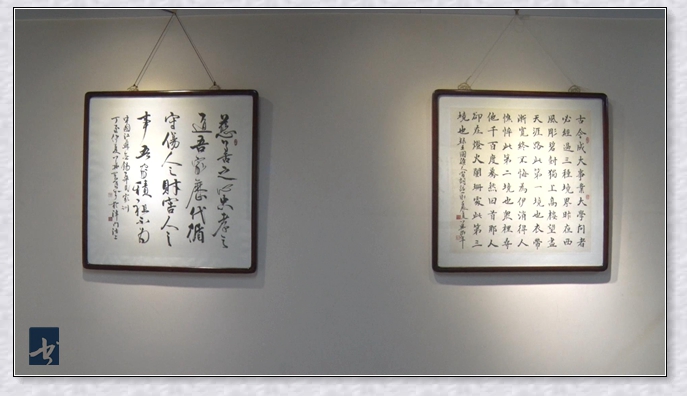 慈善之心忠孝之
道吾家歷代循
守傷人之財害人之
事吾家積祖不為
古今成大事業大學問者
必經過三種境界昨夜西
風彫碧樹獨上高樓望盡
天涯路此第一境也衣帶
漸寬終不悔為伊消得人
憔悴此第二境也衆裡尋
他千百度驀然回首那人
卻在燈火闌珊處此第三
境也 錄王國維人間詞話